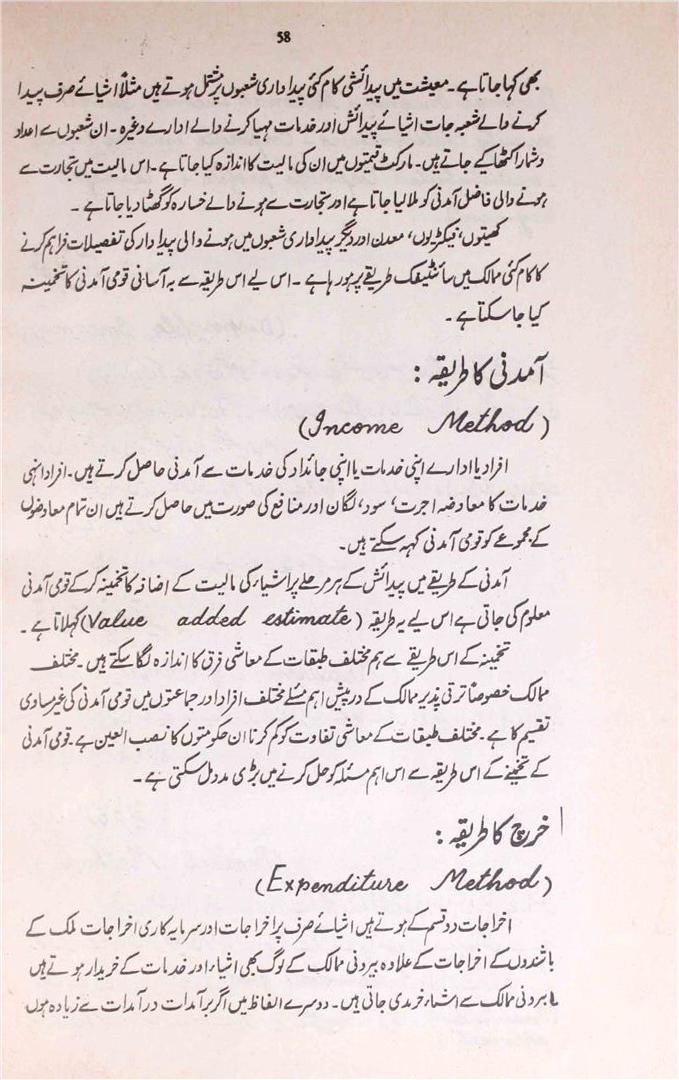 58
بھی کہا جاتا ہے۔ معیشت میں پیدائشی کام کئی پیداداری شعبوں پر مشتمل ہوتے ہیں مثلاً اشیائے صرف پیدا
کرنے والے شعبہ جات اشیائے پیدائش اور خدمات مہیا کرنے والے ادارے وغیرہ۔ ان شعبوں سے اعداد
و شمار اکٹھا کیے جاتے ہیں۔ مارکٹ قیمتوں میں ان کی مالیت کا اندازہ کیا جاتا ہے۔ اس مالیت میں تجارت سے
ہونے والی فاضل آمدنی کو ملا لیا جاتا ہے اور تجارت سے ہونے والے خسارہ کو گھٹا دیا جاتا ہے۔
کھیتوں، فیکڑیوں، معدن اور دیگر پیداداری شعبوں میں ہونے والی پیداوار کی تفصیلات فراہم کرنے
کا کام کئی ممالک میں سائنٹیفک طریقے پر ہو رہا ہے۔ اس لیے اس طریقہ سے بہ آسانی قومی آمدنی کا تخمینہ
کیا جا سکتا ہے۔
آمدنی کا طریقہ :
(Income Method)
افراد یا ادارے اپنی خدمات یا اپنی جائداد کی خدمات سے آمدنی حاصل کرتے ہیں۔ افراد انہی
خدمات کا معاوضہ اجرت، سود، لگان اور منافع کی صورت میں حاصل کرتے ہیں ان تمام معاوضوں
کے مجموعے کو قومی آمدنی کہہ سکتے ہیں۔
آمدنی کے طریقے میں پیدائش کے ہر مرحلے پر اشیاء کی مالیت کے اضافہ کا تخمینہ کرکے قومی آمدنی
معلوم کی جاتی ہے اس لیے یہ طریقہ (Value added estimate) کہلاتا ہے۔
تخمینہ کے اس طریقے سے ہم مختلف طبقات کے معاشی فرق کا اندازہ لگا سکتے ہیں۔ مختلف
ممالک خصوصاً ترقی پذیر ممالک کے درپیش اہم مسئلے مختلف افراد اور جماعتوں میں قومی آمدنی کی غیر مساوی
تقسیم کا ہے۔ مختلف طبقات کے معاشی تفاوت کو کم کرنا ان حکومتوں کا نصب العین ہے۔ قومی آمدنی
کے تخمینے کے اس طریقہ سے اس اہم مسئلہ کو حل کرنے میں بڑی مدد مل سکتی ہے۔
خرچ کا طریقہ :
(Expenditure Method)
اخراجات دو قسم کے ہوتے ہیں اشیائے صرف پر اخراجات اور سرمایہ کاری اخراجات ملک کے
باشندوں کے اخراجات کے علاوہ بیرونی ممالک کے لوگ بھی اشیاء اور خدمات کے خریدار ہوتے ہیں
یا بیرونی ممالک سے اشیاء خریدی جاتی ہیں۔ دوسرے الفاظ میں اگر برآمدات درآمدات سے زیادہ ہوں